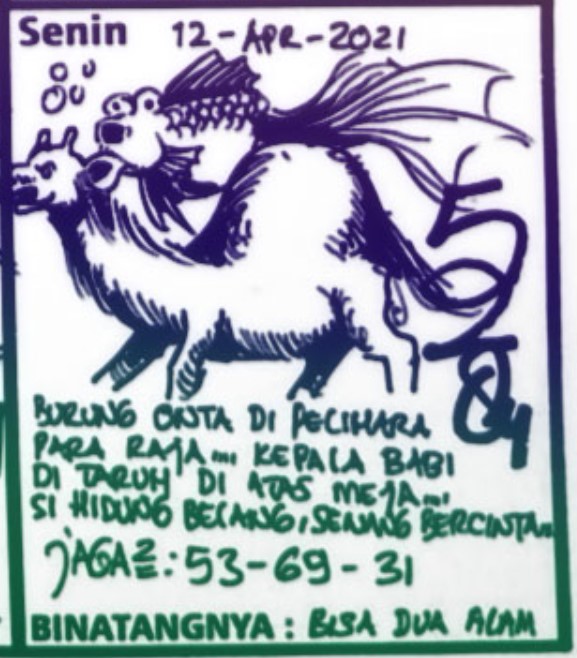 Senin 12-APR-2021
BURUNG ONTA DI PECIHARA
PARA RAJA... KEPALA BABI
DI TARUH DI ATAS MEJA...
SI HIDUNG BECANG, SENANG BERCINTA..
JAGA2: 53-69-31
BINATANGNYA : BISA DUA ALAM